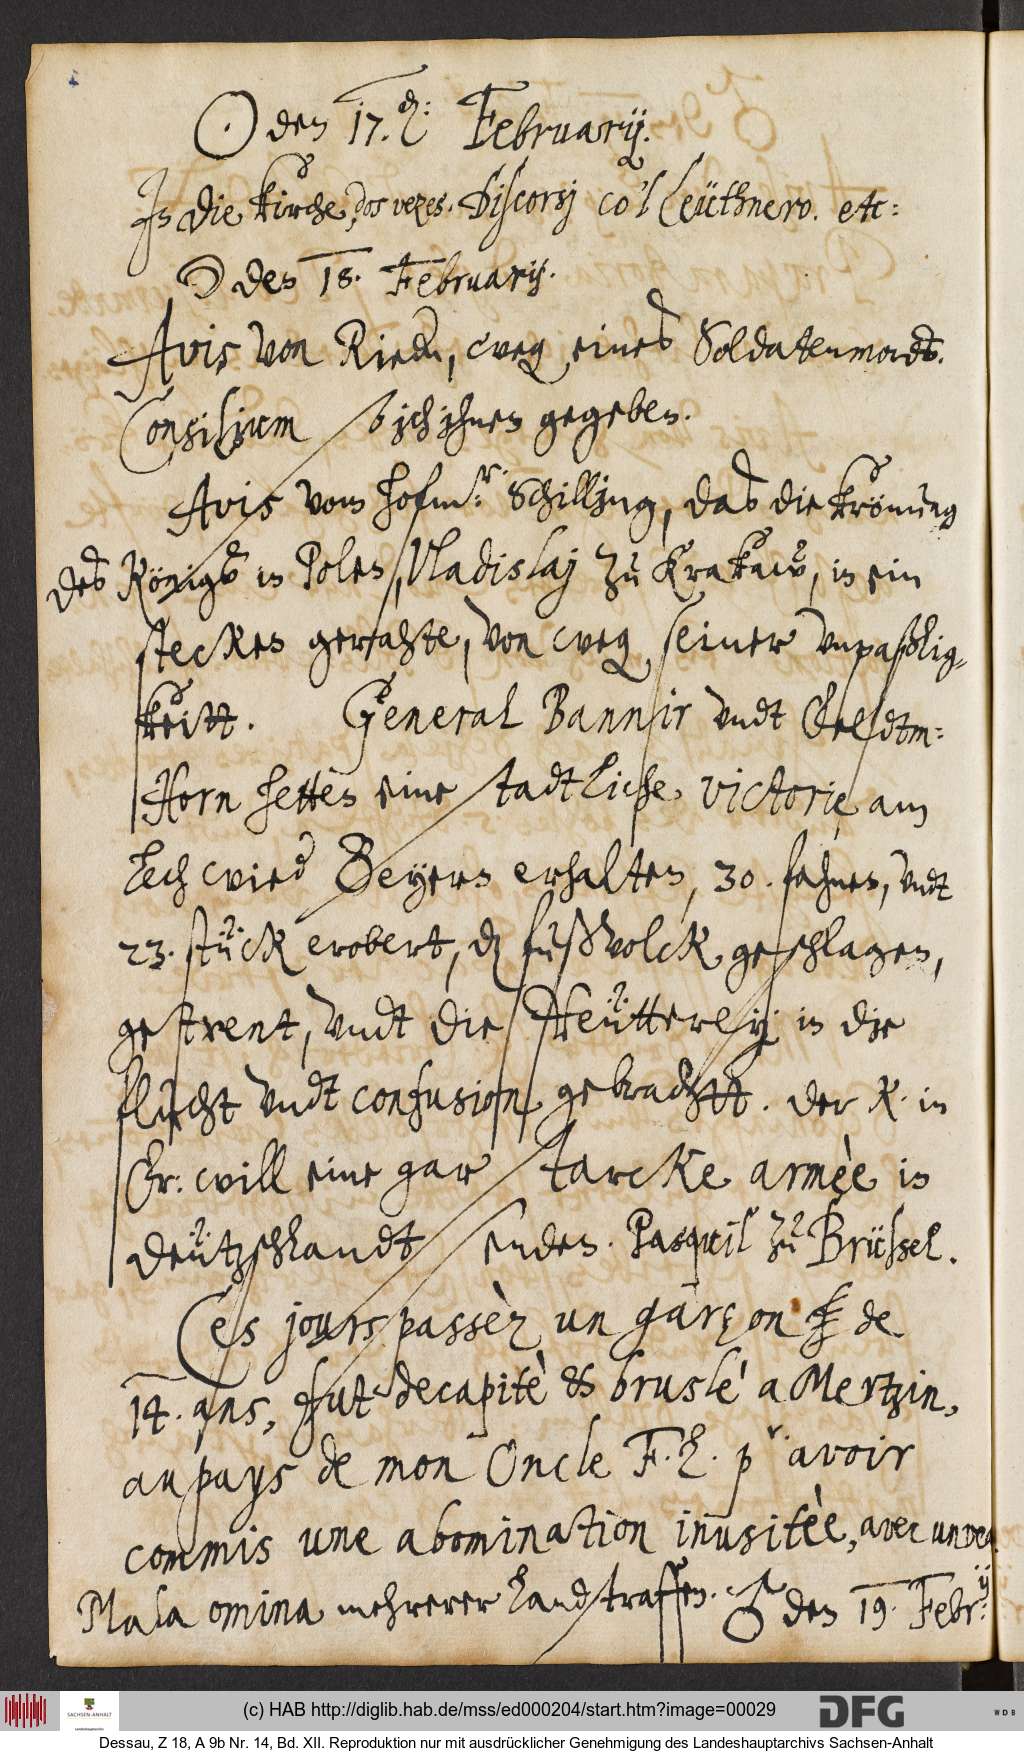 ⊙ den 17. den: Februarij.
In die kirche, dos vezes. Discorsj co'l Leüthnero. etc:
☽ den 18. Februarij.
Avis von Riedern, weg eines Soldatenmords.
Consilium so ich ihnen gegeben.
Avis vom hofmr: Schilling, das die krönung
des Königs in Polen, Vladislaj zu Krakaw, in ein
stecken gerahte, von weg seiner vnpaßlig-
keitt. General Bannir vndt Veldtm:
Horn hetten eine stadtliche victorie am
Lech wied Beyern erhalten, 30. fahnen, vndt
23. stück erobert, dz fußvolck geschlagen,
getrent, vndt die Reütterey in die
flucht vndt confusion gebrachtt. der K. in
Fr: will eine gar starcke armèe in
Deützschlandt senden. Pasquil zu Brüssel.
Ces jours passèz un garçon de
14. ans, fut decapitè & bruslé a Mertzin,
au pays de mon Oncle F. L. pr. avoir
commis une abomination inusitèe, avec un vea
Mala omina mehrerer landstraffen. ♂ den 19. Febr:ij
(c) HAB http://diglib.hab.de/mss/ed000204/start.htm?image=00029
SACHSEN-ANHALT
DFG
WDB
Dessau, Z 18, A 9b Nr. 14, Bd. XII. Reproduktion nur mit ausdrücklicher Genehmigung des Landeshauptarchivs Sachsen-Anhalt